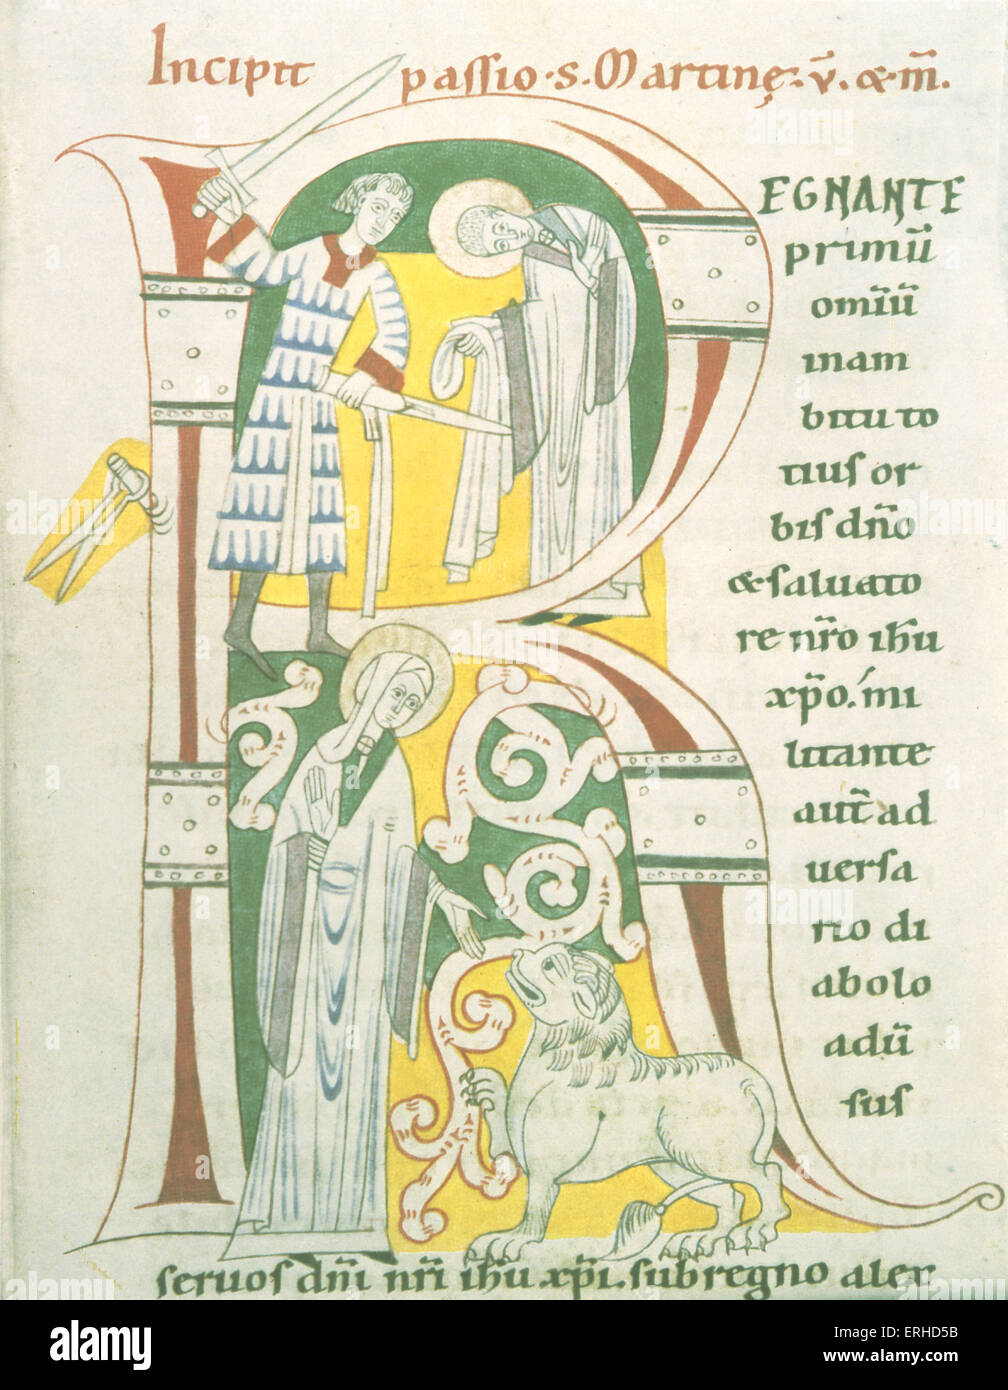 Incipit passio · s. Martinę. v̄. & m̄.
REGNANTE
primū
omiū̄
inam
bitu to
tius or
bis dn̄o
& saluato
re nr̄o ihū
xp̄o. mi
litante
aut̄ ad
uersa
rio di
abolo
adū
sus
seruos dn̄i nr̄i ihū xp̄i. sub regno alex
alamy
Image ID: ERHD5B
www.alamy.com